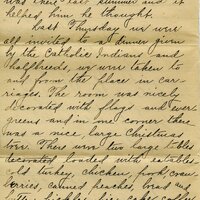 was chest last summer and it
helped him he thought.
Last Thursday we were
all invited to a dinner given
by the Catholic Indians and
halfbreeds, we were taken to
and from the place in car-
riages. The room was nicely
decorated with flags and ever
greens and in one corner there
was a nice large Christmas
tree. There were two large tables
decorated loaded with eatables
cold turkey, chicken, pork, cran-
berries, canned peaches, bread and